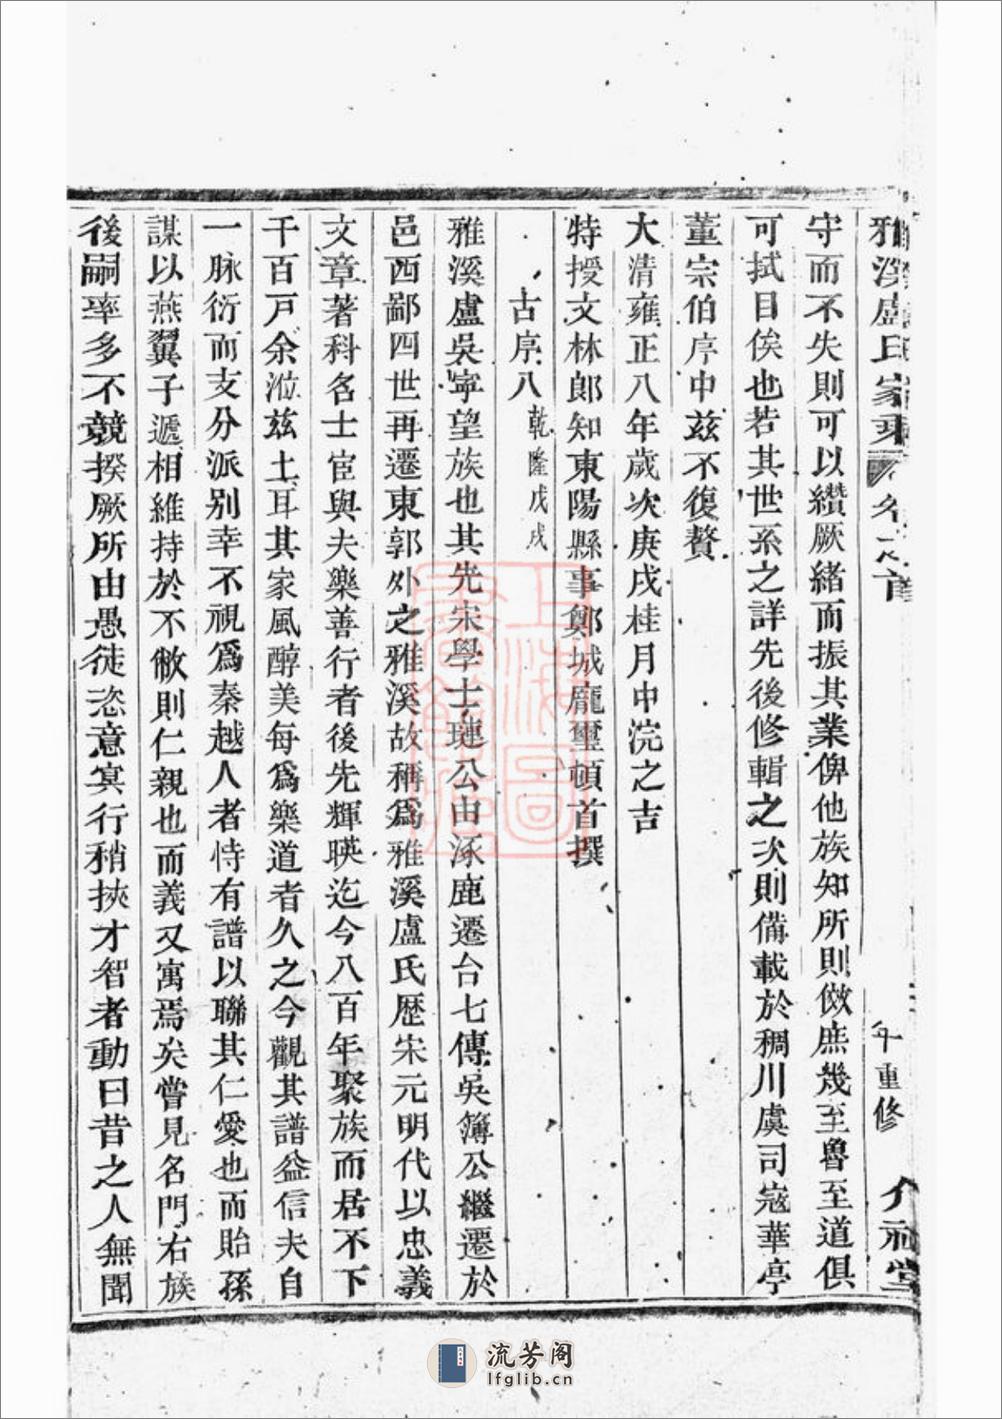 雅溪盧氏家乘 卷之首 年重修
守而不失則可以纘厥緒而振其業俾他族知所則傚庶幾至魯至道俱
可拭目俟也若其世系之詳先後修輯之次則備載於稠川虞司寇華亭
董宗伯序中兹不復贅
大清雍正八年歲次庚戌桂月中浣之吉
特授文林郎知東陽縣事鄭城龐璽頓首撰
古序八 乾隆戊戌
雅溪盧吳寧望族也其先宋學士璉公由涿鹿遷台七傳吳簿公繼遷於
邑西鄙四世再遷東郭外之雅溪故稱爲雅溪盧氏歷宋元明代以忠義
文章著科名士宦與夫樂善行者後先輝暎迄今八百年聚族而居不下
千百戸余涖兹土耳其家風醇美每爲樂道者久之今觀其譜益信夫自
一脉衍而支分派别幸不視爲秦越人者恃有譜以聯其仁愛也而貽孫
謀以燕翼子遞相維持於不敝則仁親也而義又寓焉矣嘗見名門右族
後嗣率多不競揆厥所由愚徒恣意冥行稍挾才智者動曰昔之人無聞
上海圖
書館藏
流芳阁
lfglib.cn